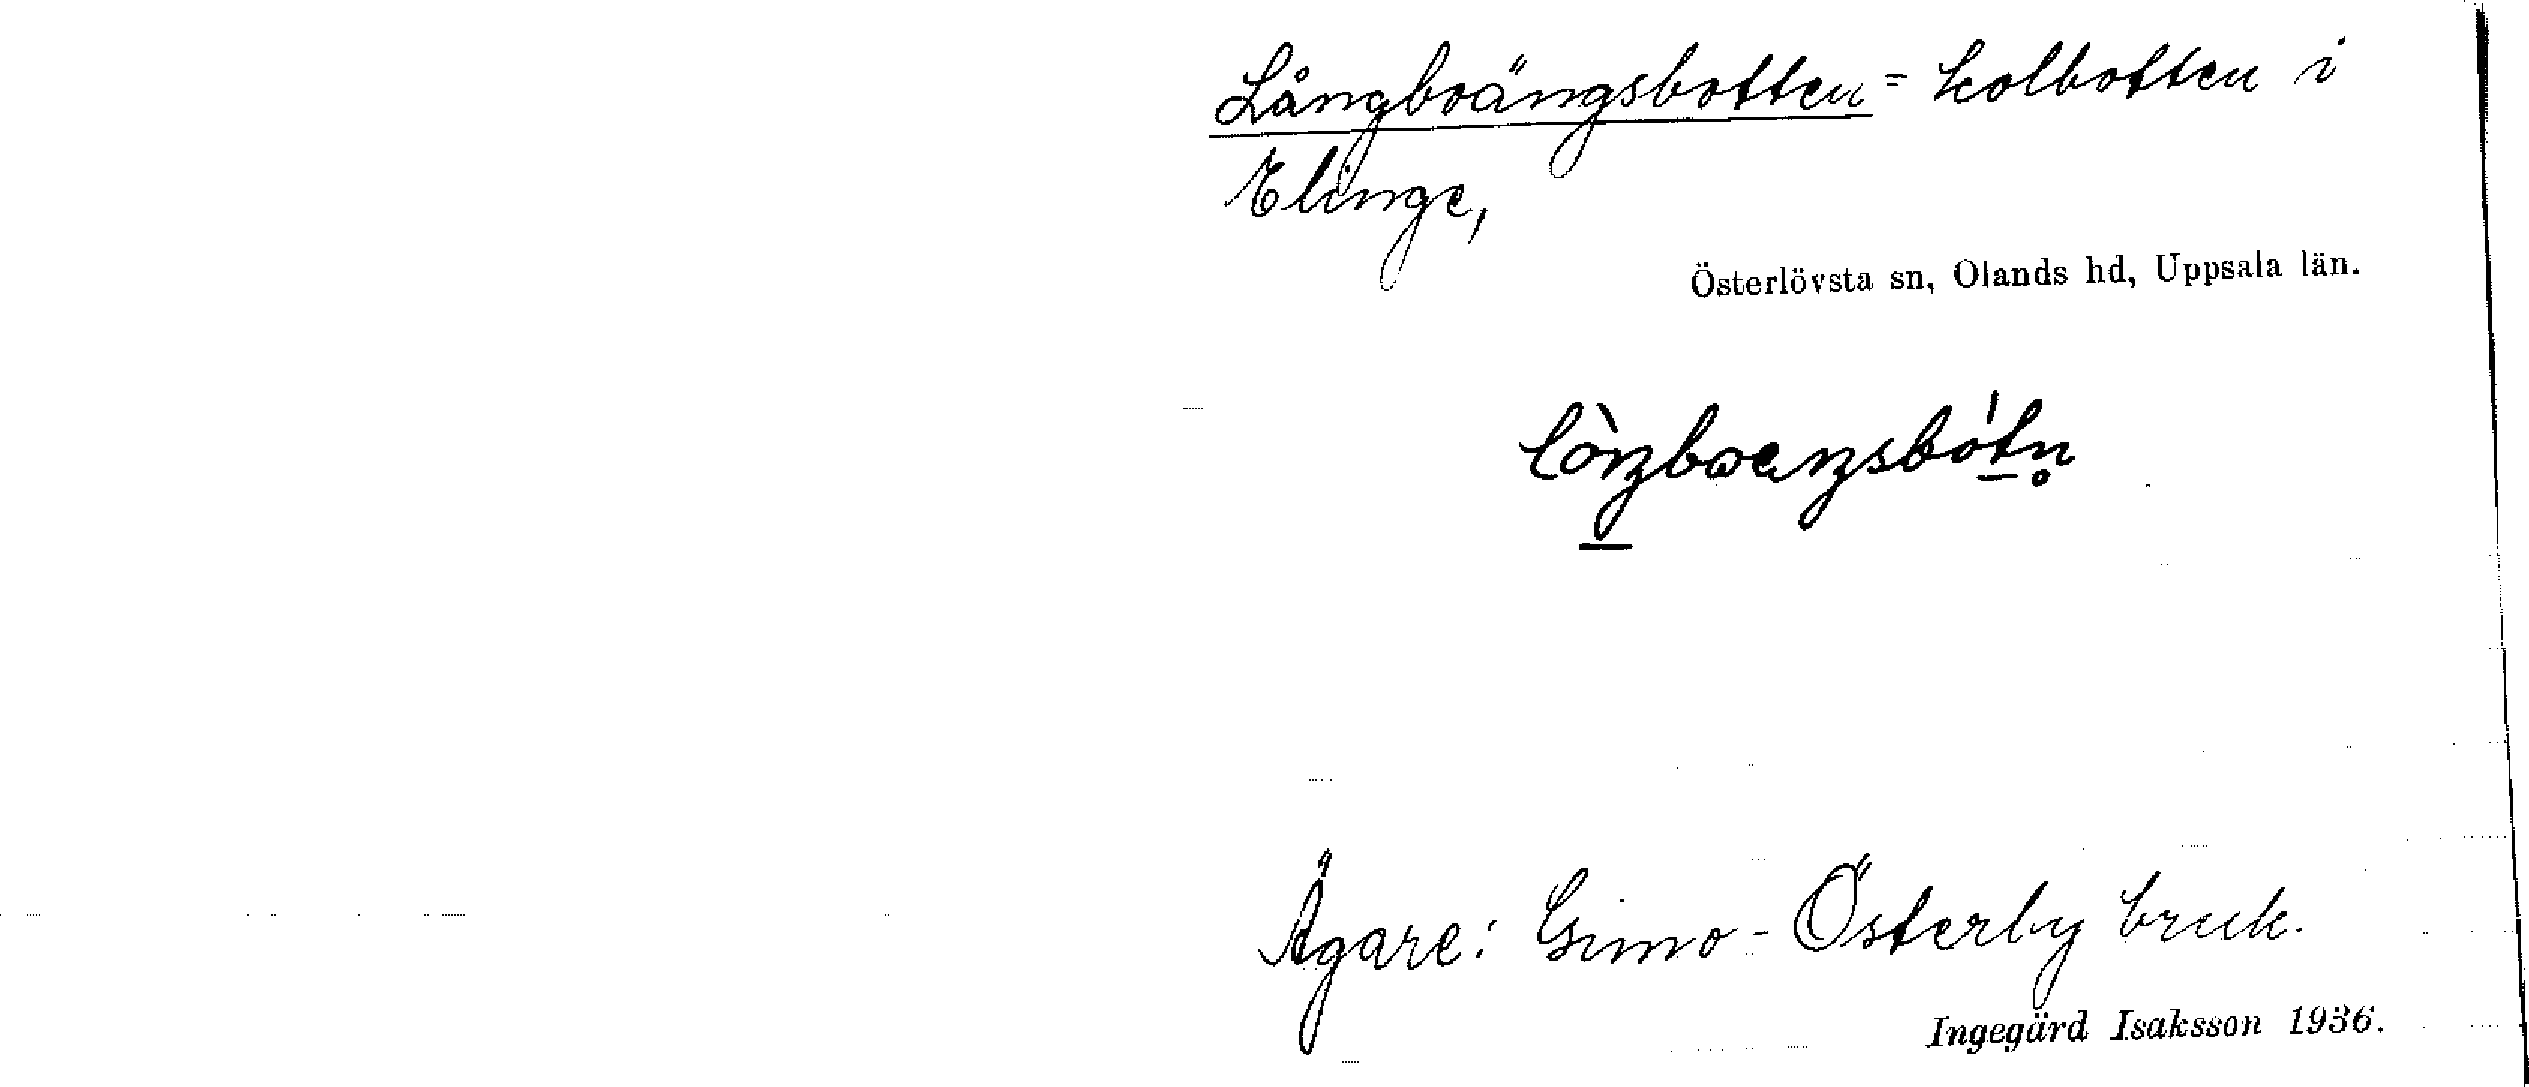 Långboängsbotten = kolbotten i
Elinge,
Österlövsta sn, Olands hd, Uppsala län.
Ägare: Gimo-Österby bruk.
Ingegärd Isaksson 1936.